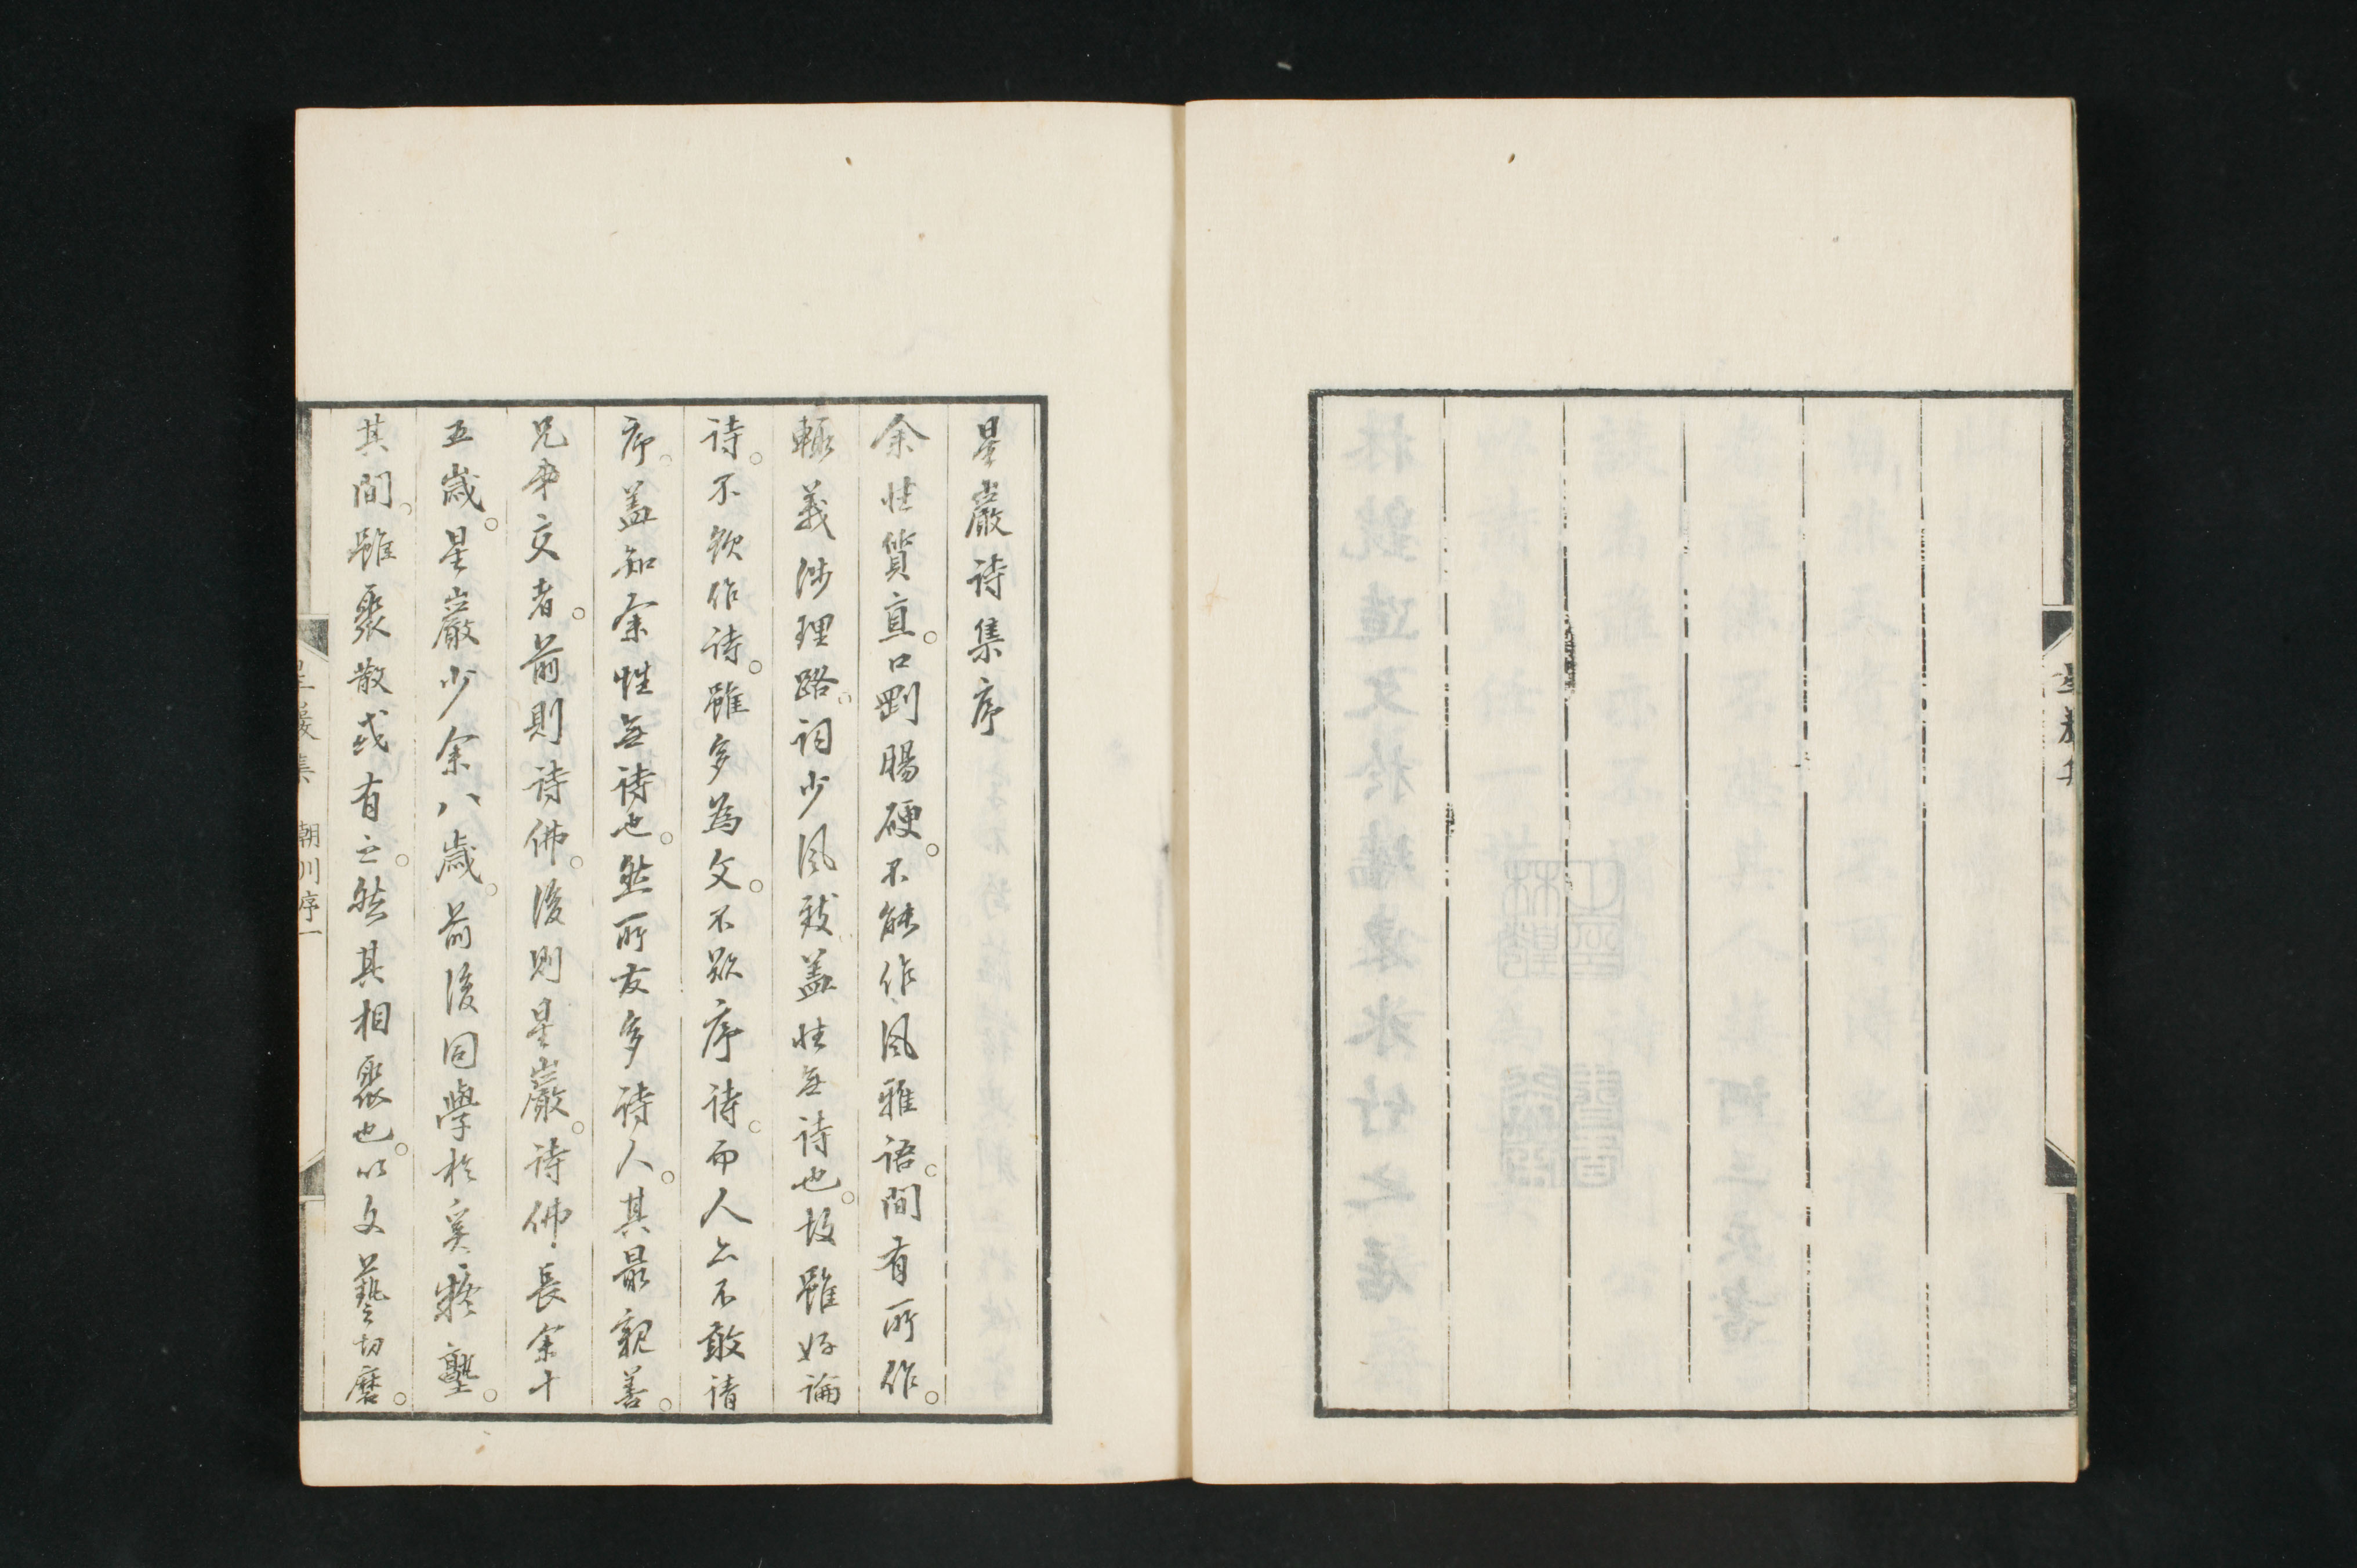 星巖集
星巖詩集序
余性質直。口剛腸硬。不能作風雅語。間有所作。
輒義涉理路。詞少風致。蓋性無詩也。故雖好論
詩。不欲作詩。雖多為文。不欲序詩。而人亦不敢請
序。蓋知余性無詩也。然所友多詩人。其最親善。
兄事交者。前則詩佛。後則星巖。詩佛長余十
五歲。星巖少余八歲。前後同學於奚疑塾。
其間。雖聚散或有之。然其相聚也。以文藝切磨。
星巖集 朝川序一